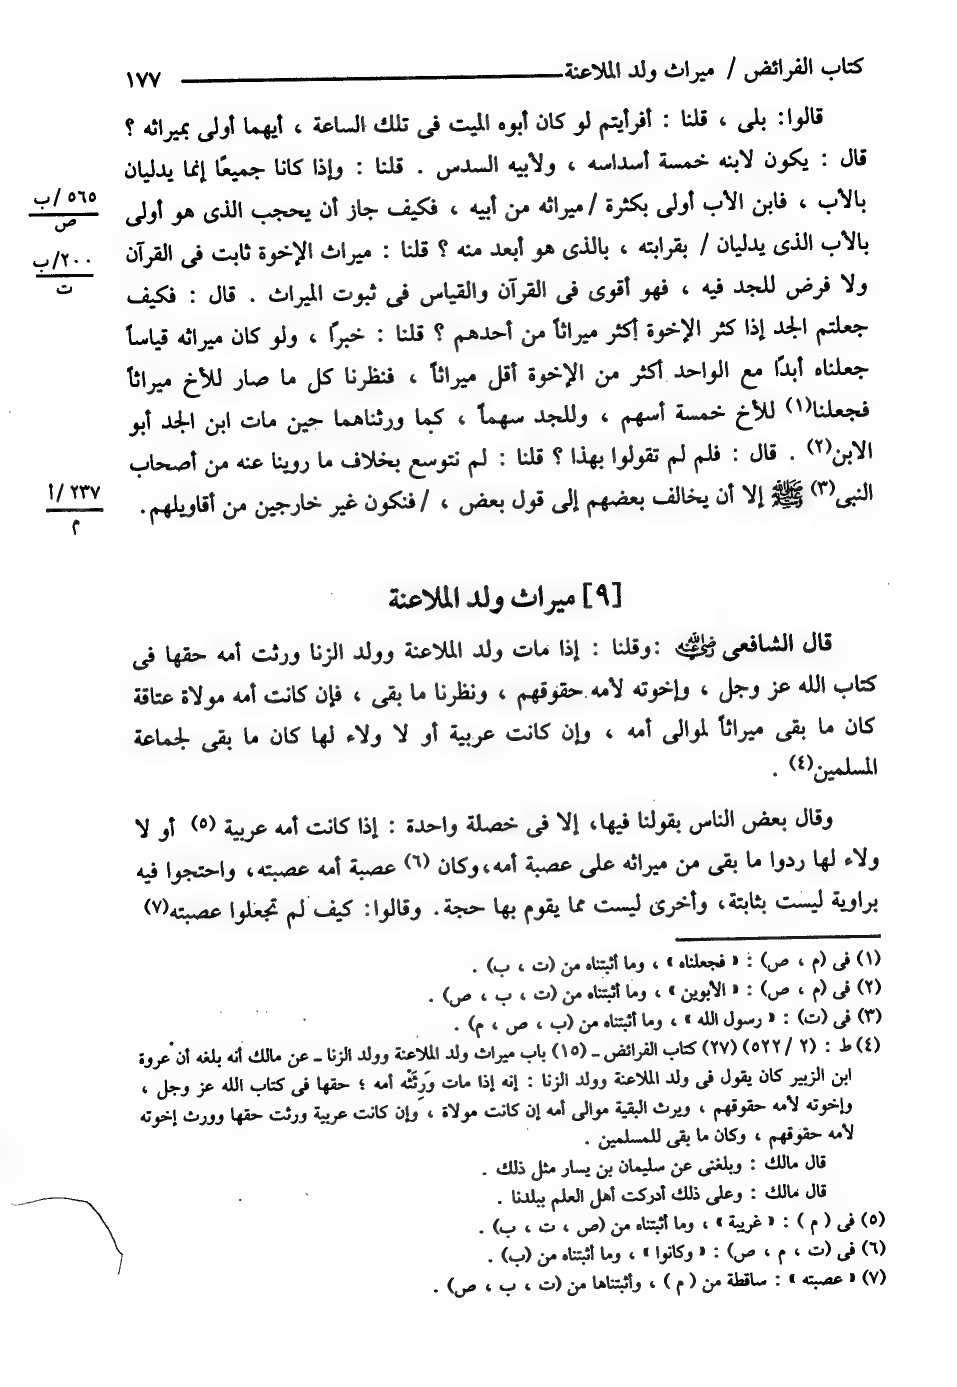 كتاب الفرائض / ميراث ولد الملاعنة ١٧٧
قالوا: بلى ، قلنا : أفرأيتم لو كان أبوه الميت فى تلك الساعة ، أيهما أولى بميراثه ؟
قال : يكون لابنه خمسة أسداسه ، ولأبيه السدس . قلنا : وإذا كانا جميعًا إنما يدليان
بالأب ، فابن الأب أولى بكثرة / ميراثه من أبيه ، فكيف جاز أن يحجب الذى هو أولى
٥٦٥ /ب
ص
بالأب الذى يدليان / بقرابته ، بالذى هو أبعد منه ؟ قلنا : ميراث الإخوة ثابت فى القرآن
٢٠٠/ب
ت
ولا فرض للجد فيه ، فهو أقوى فى القرآن والقياس فى ثبوت الميراث . قال : فكيف
جعلتم الجد إذا كثر الإخوة أكثر ميراثاً من أحدهم ؟ قلنا : خبرًا ، ولو كان ميراثه قياساً
جعلناه أبدًا مع الواحد أكثر من الإخوة أقل ميراثاً ، فنظرنا كل ما صار للأخ ميراثاً
فجعلنا(١) للأخ خمسة أسهم ، وللجد سهماً ، كما ورثناهما حين مات ابن الجد أبو
الابن(٢) . قال : فلم لم تقولوا بهذا ؟ قلنا : لم نتوسع بخلاف ما روينا عنه من أصحاب
النبى(٣) ﷺ إلا أن يخالف بعضهم إلى قول بعض ، / فنكون غير خارجين من أقاويلهم .
٢٣٧ /أ
م
[٩] ميراث ولد الملاعنة
قال الشافعى رضي الله عنه : وقلنا : إذا مات ولد الملاعنة وولد الزنا ورثت أمه حقها فى
كتاب الله عز وجل ، وإخوته لأمه حقوقهم ، ونظرنا ما بقى ، فإن كانت أمه مولاة عتاقة
كان ما بقى ميراثاً لموالى أمه ، وإن كانت عربية أو لا ولاء لها كان ما بقى لجماعة
المسلمين(٤) .
وقال بعض الناس بقولنا فيها، إلا فى خصلة واحدة : إذا كانت أمه عربية (٥) أو لا
ولاء لها ردوا ما بقى من ميراثه على عصبة أمه،وكان (٦) عصبة أمه عصبته، واحتجوا فيه
براوية ليست بثابتة، وأخرى ليست مما يقوم بها حجة. وقالوا: كيف لم تجعلوا عصبته(٧)
(١) فى (م ، ص) : « فجعلناه » ، وما أثبتناه من (ت ، ب) .
(٢) فى (م ، ص) : « الأبوين » ، وما أثبتناه من (ت ، ب ، ص) .
(٣) فى (ت) : « رسول الله » ، وما أثبتناه من (ب ، ص ، م) .
(٤) ط : (٢ / ٥٢٢) (٢٧) كتاب الفرائض ــ (١٥) باب ميراث ولد الملاعنة وولد الزنا ــ عن مالك أنه بلغه أن عروة
ابن الزبير كان يقول فى ولد الملاعنة وولد الزنا : إنه إذا مات وَرِثَتْه أمه ؛ حقها فى كتاب الله عز وجل ،
وإخوته لأمه حقوقهم ، ويرث البقية موالى أمه إن كانت مولاة ، وإن كانت عربية ورثت حقها وورث إخوته
لأمه حقوقهم ، وكان ما بقى للمسلمين .
قال مالك : وبلغنى عن سليمان بن يسار مثل ذلك .
قال مالك : وعلى ذلك أدركت أهل العلم ببلدنا .
(٥) فى ( م ) : « غريبة » ، وما أثبتناه من (ص ، ت ، ب) .
(٦) فى (ت ، م ، ص) : « وكانوا » ، وما أثبتناه من (ب) .
(٧) « عصبته » : ساقطة من ( م ) ، وأثبتناها من (ت ، ب ، ص) .